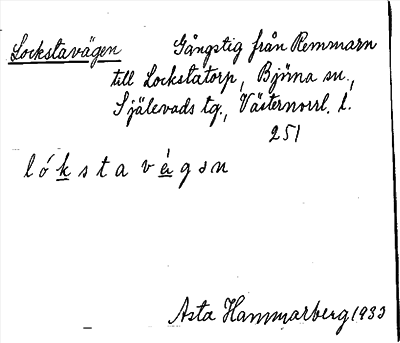 Lockstavägen Gångstig från Remmarn
till Lockstatorp, Björna sn.,
Själevads tg., Västernorrl. l.
251
lókstavègən
Asta Hammarberg 1933